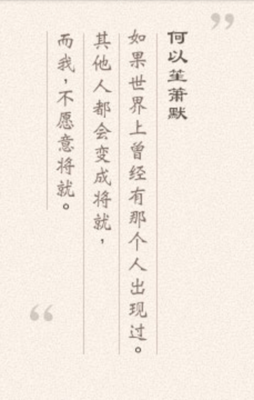 何以笙萧默
如果世界上曾经有那个人出现过。
其他人都会变成将就，
而我，不愿意将就。